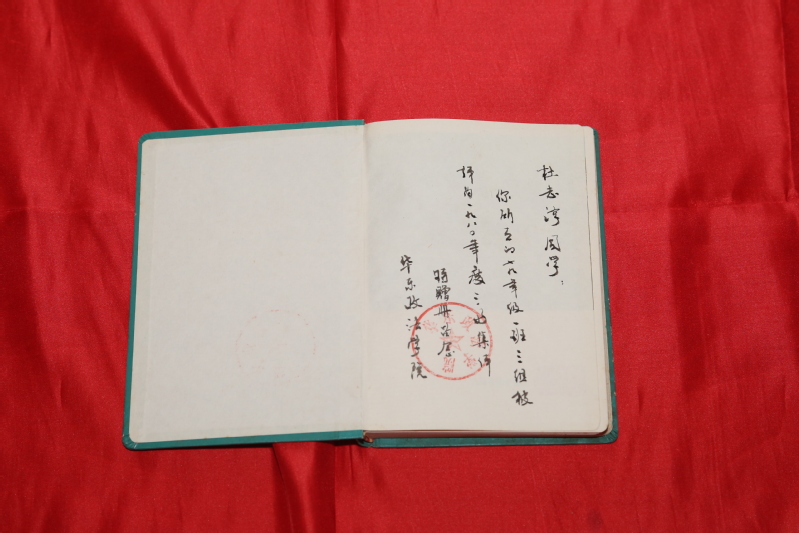 杜志淳同学:
你所在的七九年级一班三组被
评为一九八〇年度三好集体
特赠册留念
华东政法学院